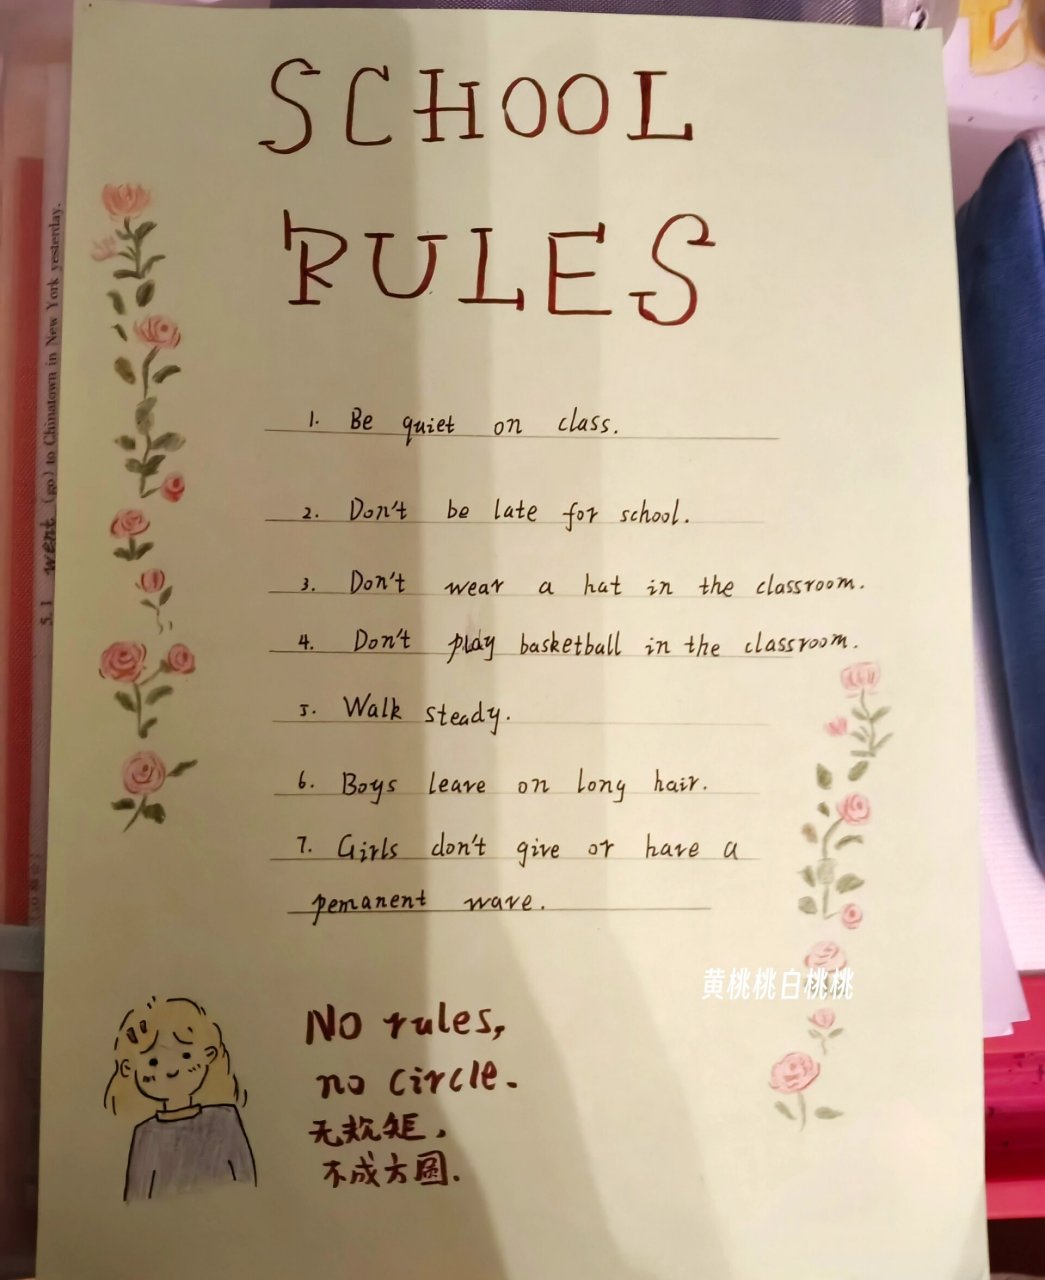 SCHOOL
RULES
1. Be quiet on class.
2. Don't be late for school.
3. Don't wear a hat in the classroom.
4. Don't play basketball in the classroom.
5. Walk steady.
6. Boys leave on long hair.
7. Girls don't give or have a
pemanent wave.
黄桃桃白桃桃
No rules,
no circle.
无规矩,
不成方圆.
5.1 went (go) to Chinatown in New York yesterday.